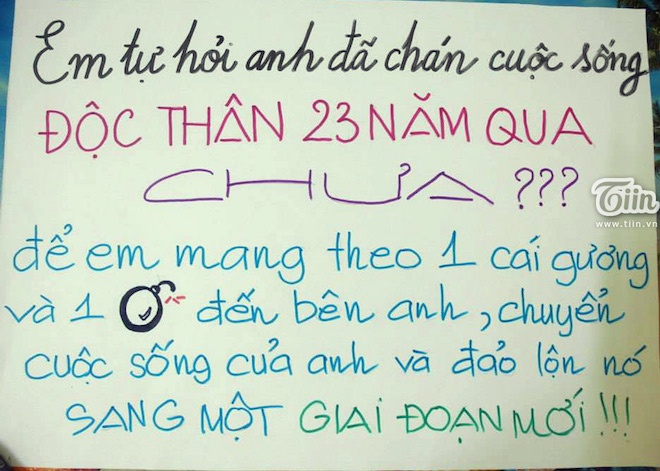 Em tự hỏi anh đã chán cuộc sống
ĐỘC THÂN 23 NĂM QUA
CHƯA ???
để em mang theo 1 cái gương
và 1 đến bên anh, chuyển
cuộc sống của anh và đảo lộn nó
SANG MỘT GIAI ĐOẠN MỚI !!!
Tiin
www.tiin.vn